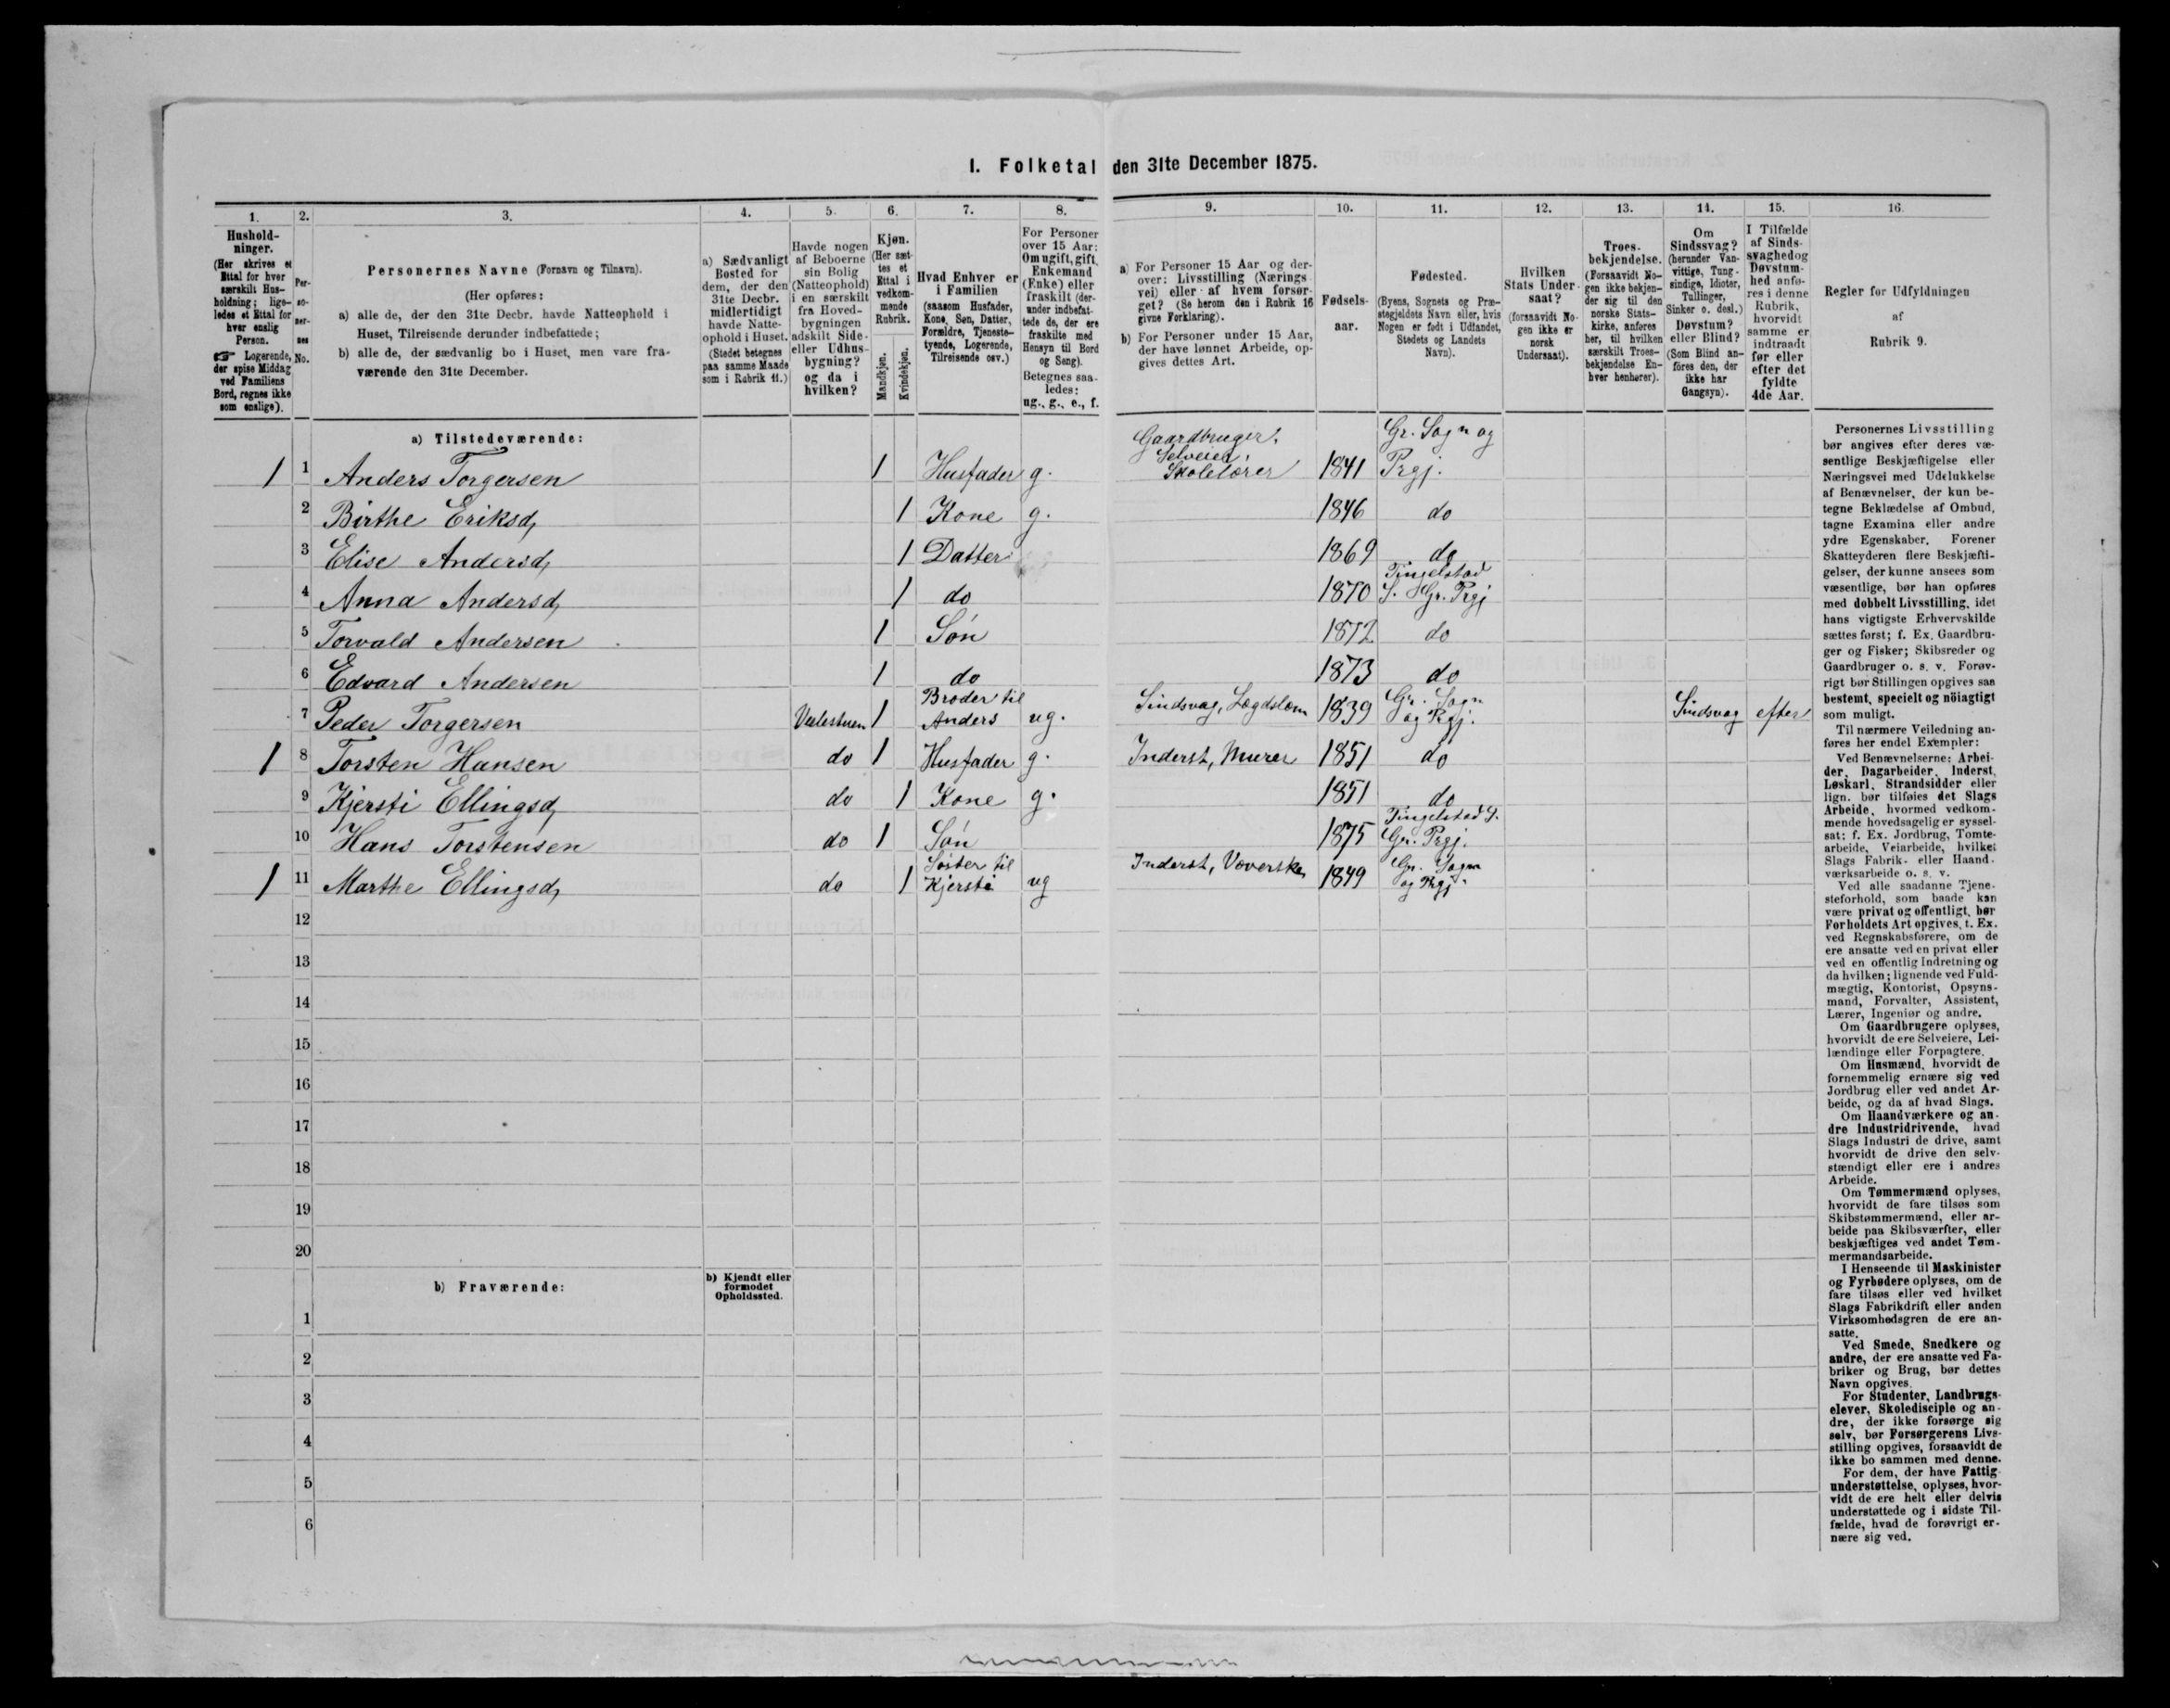 I. Folketal den 31te December 1875.
1. 2. 3. 4. 5. 6. 7. 8. 9. 10. 11. 12. 13. 14. 15. 16.
Hushold-
ninger.
(Her skrives et
Ettal for hver
særskilt Hus-
holdning; lige-
ledes et Ettal for
hver enslig
Person.
☞ Logerende,
der spise Middag
ved Familiens
Bord, regnes ikke
som enslige).
Per-
so-
ner-
nes
No.
Personernes Navne (Fornavn og Tilnavn).
(Her opføres:
a) alle de, der den 31te Decbr. havde Natteophold i
Huset, Tilreisende derunder indbefattede;
b) alle de, der sædvanlig bo i Huset, men vare fra-
værende den 31te December.
a) Sædvanligt
Bosted for
dem, der den
31te Decbr.
midlertidigt
havde Natte-
ophold i Huset.
(Stedet betegnes
paa samme Maade
som i Rubrik 11.)
Havde nogen
af Beboerne
sin Bolig
(Natteophold)
i en særskilt
fra Hoved-
bygningen
adskilt Side-
eller Udhus-
bygning?
og da i
hvilken?
Kjøn.
(Her sæt-
tes et
Ettal i
vedkom-
mende
Rubrik.
Mandkjøn.
Kvindekjøn.
Hvad Enhver er
i Familien
(saasom Husfader,
Kone, Søn, Datter,
Forældre, Tjeneste-
tyende, Logerende,
Tilreisende osv.)
For Personer
over 15 Aar:
Om ugift, gift,
Enkemand
(Enke) eller
fraskilt (der-
under indbefat-
tede de, der ere
fraskilte med
Hensyn til Bord
og Seng).
Betegnes saa-
ledes:
ug., g., e., f.
a) For Personer 15 Aar og der-
over: Livsstilling (Nærings-
vei) eller af hvem forsør-
get? (Se herom den i Rubrik 16
givne Forklaring).
b) For Personer under 15 Aar,
der have lønnet Arbeide, op-
gives dettes Art.
Fødsels-
aar.
Fødested.
(Byens, Sognets og Præ-
stegjeldets Navn eller, hvis
Nogen er født i Udlandet,
Stedets og Landets
Navn).
Hvilken
Stats Under-
saat?
(forsaavidt No-
gen ikke er
norsk
Undersaat).
Troes-
bekjendelse.
(Forsaavidt No-
gen ikke bekjen-
der sig til den
norske Stats-
kirke, anføres
her, til hvilken
særskilt Troes-
bekjendelse En-
hver henhører).
Om
Sindssvag?
(herunder Van-
vittige, Tung-
sindige, Idioter,
Tullinger,
Sinker o. desl.)
Døvstum?
eller Blind?
(Som Blind an-
føres den, der
ikke har
Gangsyn).
I Tilfælde
af Sinds-
svaghed og
Døvstum-
hed anfø-
res i denne
Rubrik,
hvorvidt
samme er
indtraadt
før eller
efter det
fyldte
4de Aar.
Regler for Udfyldningen
af
Rubrik 9.
a) Tilstedeværende:
Gaardbruger, Gr. Sogn og
Selveier,
1 1 Anders Torgersen 1 Husfader g. Skolelærer 1841 Prgj.
2 Birthe Eriksd, 1 Kone g. 1846 do
3 Elise Andersd, 1 Datter 1869 do
Tingelstad
4 Anna Andersd, 1 do 1870 S. Gr. Prgj
5 Torvald Andersen 1 Søn 1872 do
6 Edvard Andersen 1 do 1873 do
Broder til Gr. Sogn
7 Peder Torgersen 1 Anders ug. Sindsvag, Lægdslem 1839 og Prgj. Sindsvag efter
1 8 Torsten Hansen do 1 Husfader g. Inderst, Murer 1851 do
9 Kjersti Ellingsd, do 1 Kone g. 1851 do
Tingelstad S.
10 Hans Torstensen do 1 Søn 1875 Gr. Prgj.
Søster til Gr. Sogn
1 11 Marthe Ellingsd, do 1 Kjersti ug Inderst, Væverske 1849 og Prgj.
12
13
14
15
16
17
18
19
20
b) Fraværende:
b) Kjendt eller
formodet
Opholdssted.
1
2
3
4
5
6
Personernes Livsstilling
bør angives efter deres væ-
sentlige Beskjæftigelse eller
Næringsvei med Udelukkelse
af Benævnelser, der kun be-
tegne Beklædelse af Ombud,
tagne Examina eller andre
ydre Egenskaber. Forener
Skatteyderen flere Beskjæfti-
gelser, der kunne ansees som
væsentlige, bør han opføres
med dobbelt Livsstilling, idet
hans vigtigste Erhvervskilde
sættes først; f. Ex. Gaardbru-
ger og Fisker; Skibsreder og
Gaardbruger o. s. v. Forøv-
rigt bør Stillingen opgives saa
bestemt, specielt og nöiagtigt
som muligt.
Til nærmere Veiledning an-
føres her endel Exempler:
Ved Benævnelserne: Arbei-
der, Dagarbeider, Inderst,
Løskarl, Strandsidder eller
lign. bør tilføies det Slags
Arbeide, hvormed vedkom-
mende hovedsagelig er syssel-
sat; f. Ex. Jordbrug, Tomte-
arbeide, Veiarbeide, hvilket
Slags Fabrik- eller Haand-
værksarbeide o. s. v.
Ved alle saadanne Tjene-
steforhold, som baade kan
være privat og offentligt, bør
Forholdets Art opgives, t. Ex.
ved Regnskabsførere, om de
ere ansatte ved en privat eller
ved en offentlig Indretning og
da hvilken; lignende ved Fuld-
mægtig, Kontorist, Opsyns-
mand, Forvalter, Assistent,
Lærer, Ingeniør og andre.
Om Gaardbrugere oplyses,
hvorvidt de ere Selveiere, Lei-
lændinge eller Forpagtere.
Om Husmænd, hvorvidt de
fornemmelig ernære sig ved
Jordbrug eller ved andet Ar-
beide, og da af hvad Slags.
Om Haandværkere og an-
dre Industridrivende, hvad
Slags Industri de drive, samt
hvorvidt de drive den selv-
stændigt eller ere i andres
Arbeide.
Om Tømmermænd oplyses,
hvorvidt de fare tilsøs som
Skibstømmermænd, eller ar-
beide paa Skibsværfter, eller
beskjæftiges ved andet Tøm-
mermandsarbeide.
I Henseende til Maskinister
og Fyrbødere oplyses, om de
fare tilsøs eller ved hvilket
Slags Fabrikdrift eller anden
Virksomhedsgren de ere an-
satte.
Ved Smede, Snedkere og
andre, der ere ansatte ved Fa-
briker og Brug, bør dettes
Navn opgives.
For Studenter, Landbrugs-
elever, Skoledisciple og an-
dre, der ikke forsørge sig
selv, bør Forsørgerens Livs-
stilling opgives, forsaavidt de
ikke bo sammen med denne.
For dem, der have Fattig-
understøttelse, oplyses, hvor-
vidt de ere helt eller delvis
understøttede og i sidste Til-
fælde, hvad de forøvrigt er-
nære sig ved.